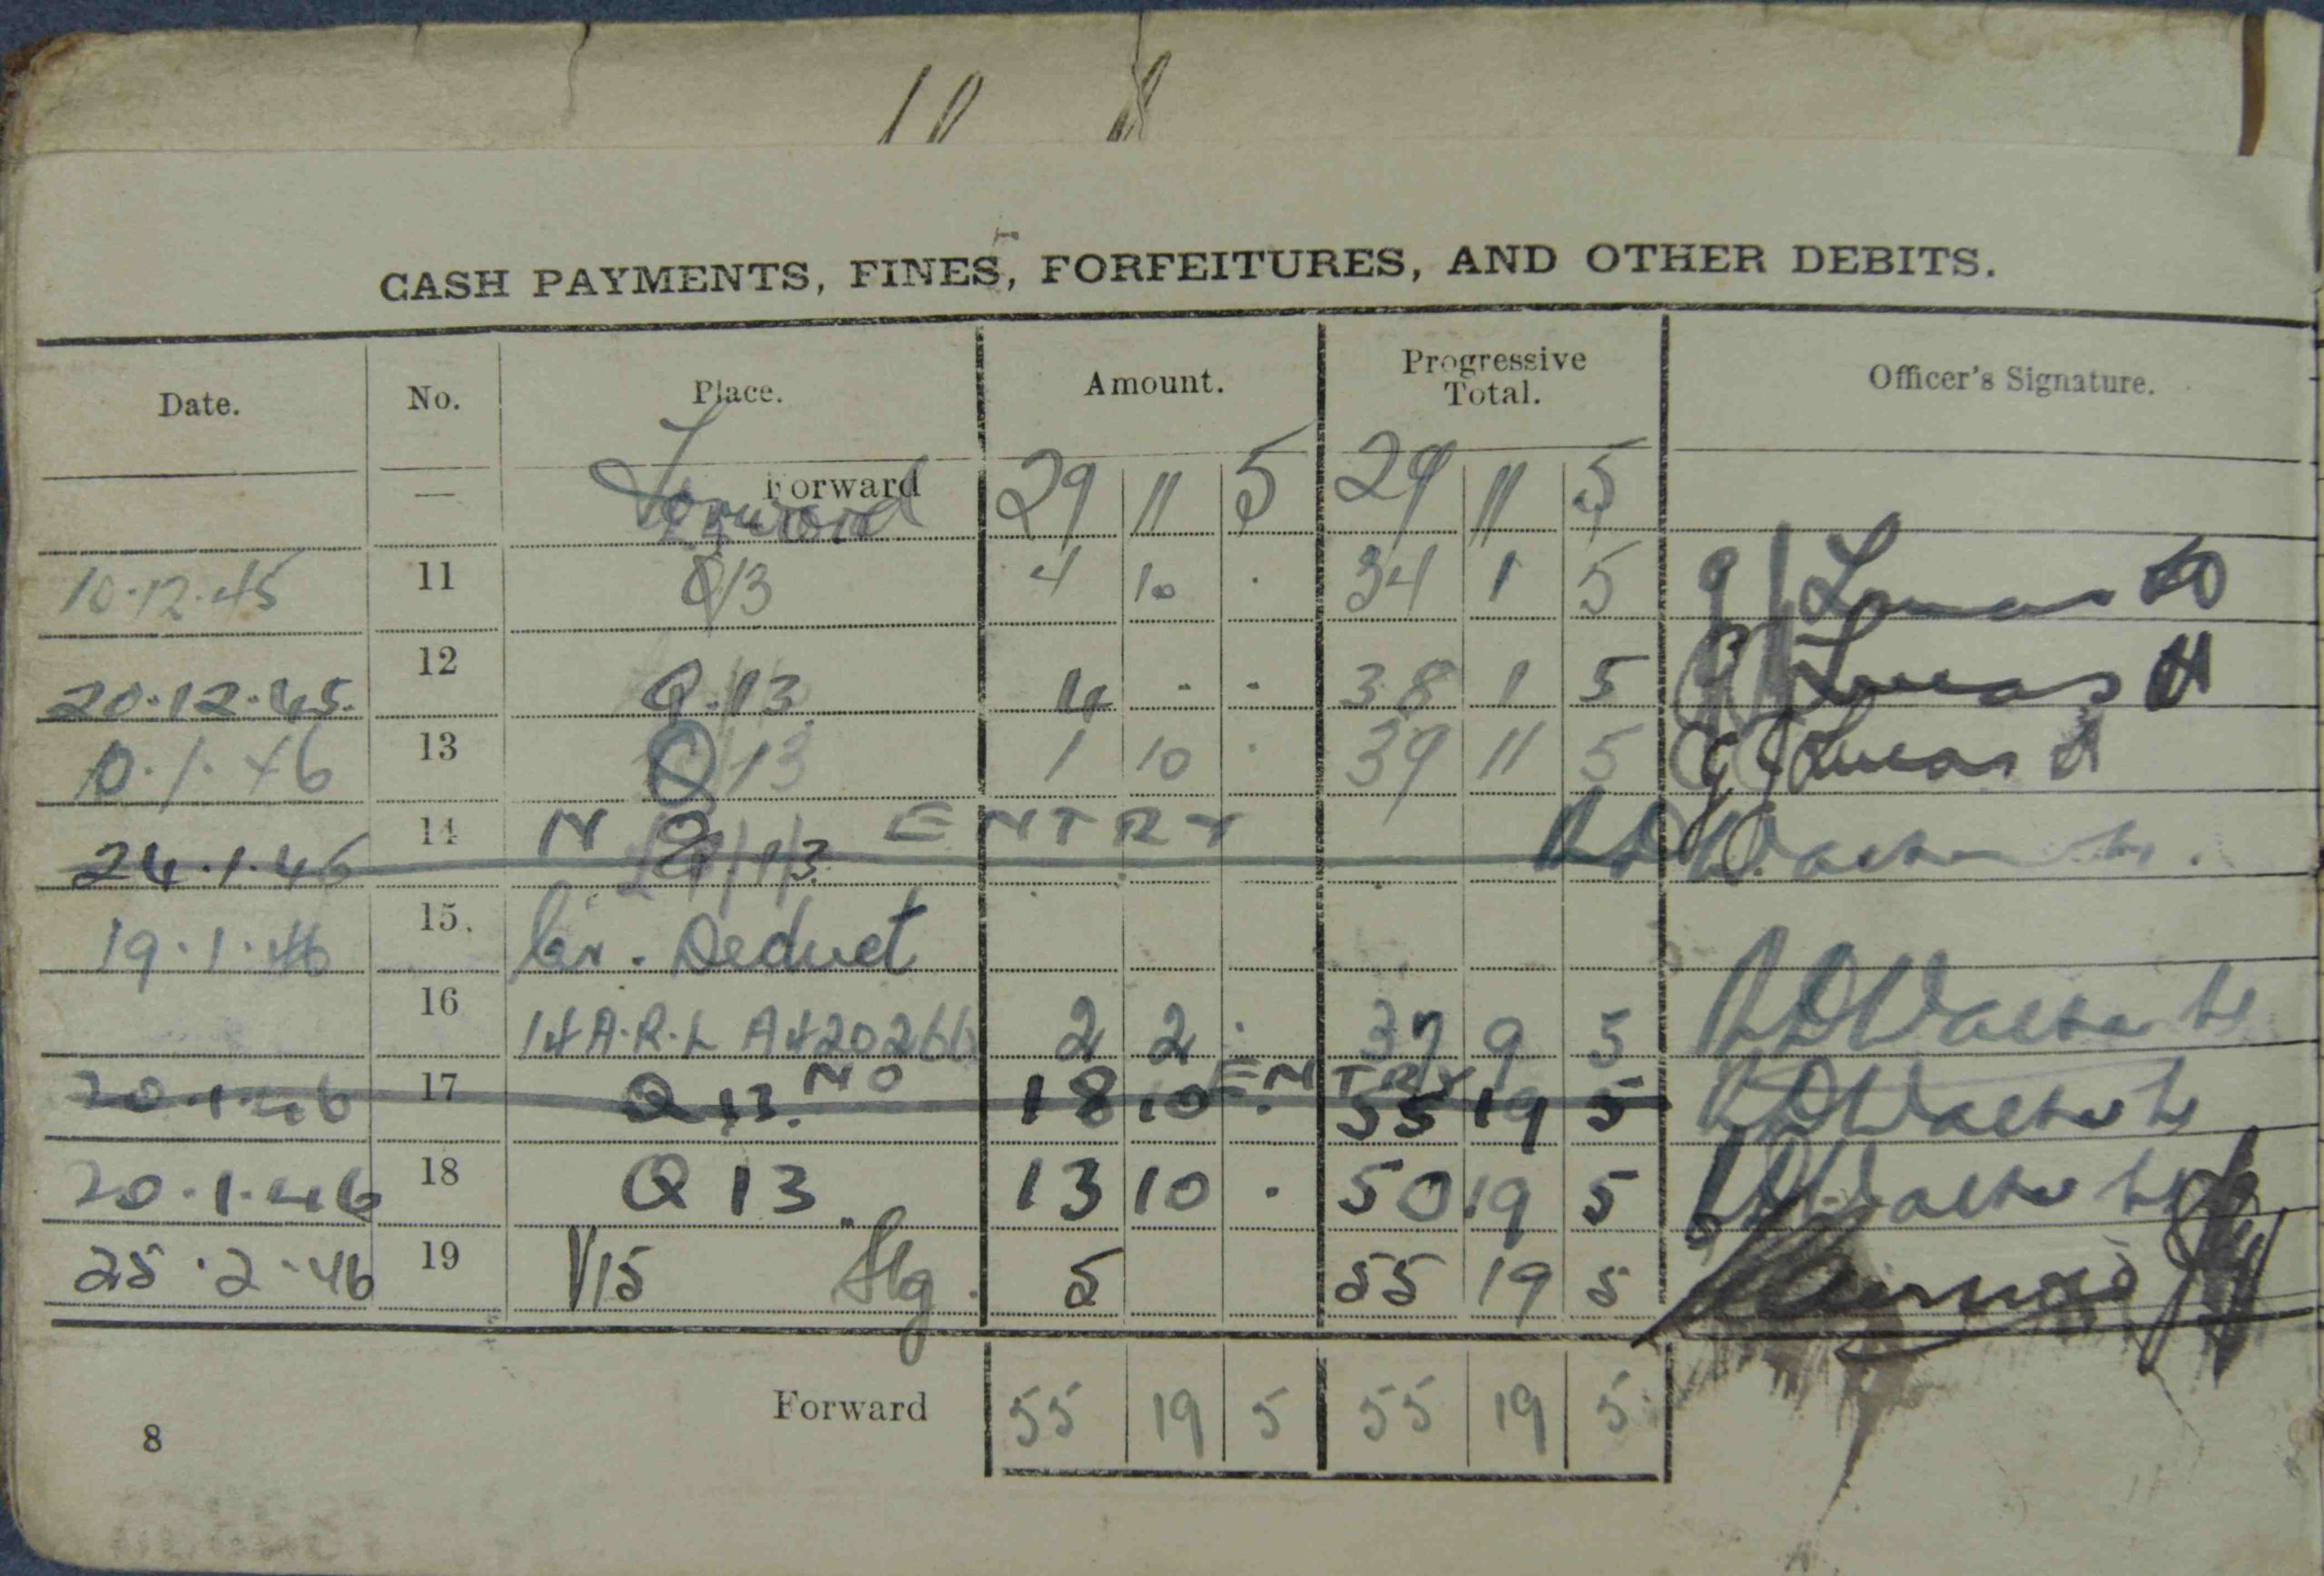 CASH PAYMENTS, FINES, FORFEITURES, AND OTHER DEBITS.
Date. No. Place. Amount. Progressive Total. Officer's Signature.
— Forward Forward 29 11 5 29 11 5
10.12.45 11 Q13 4 10 . 34 1 5 Lucas
20.12.45. 12 Q.13. 4 . . 38 1 5 Lucas
10.1.46 13 Q13 1 10 . 39 11 5 Lucas
24.1.46 14 N Q/13. ENTRY
19.1.46 15. Cr. Deduct
16 14 A.R.L A420266 2 2 . 37 9 5
20.1.46 17 Q 13. NO ENTRY 18 10 . 55 19 5
20.1.46 18 Q 13 13 10 . 50 19 5
25.2.46 19 V15 Stg. 5 55 19 5
Forward 55 19 5 55 19 5
8